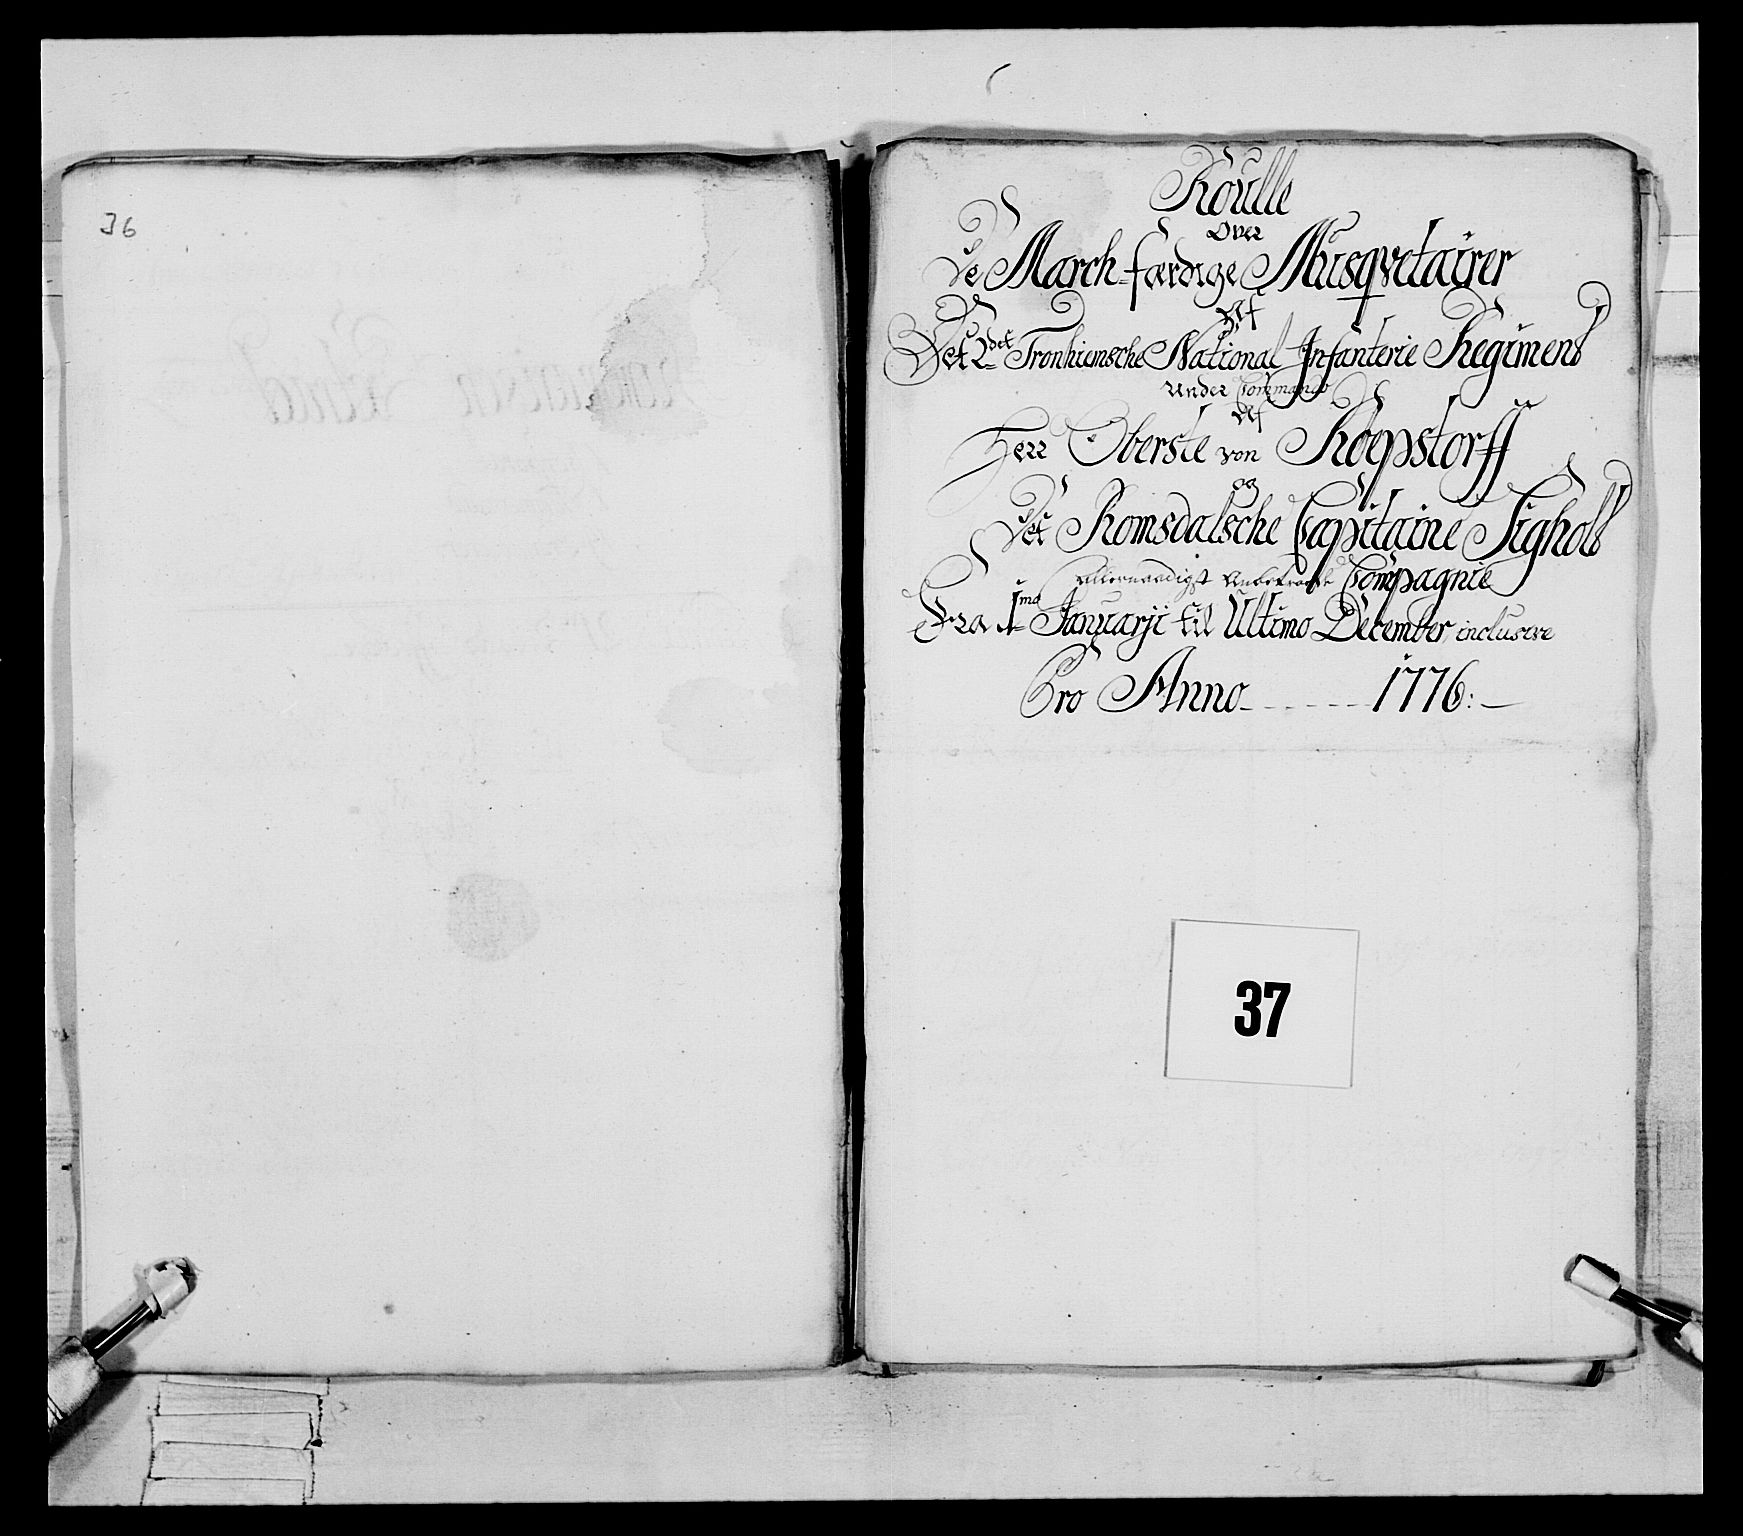 36
Roulle
Over
De March-færdige Musqvetairer
Af
Det 2det Tronhiemsche National Infanterie Regiment
Under Commando
Af
Herr Oberste von Köepstorff
og
Det Romsdalsche Capitaine Sigholt
Allernaadigst Anbetroede Compagnie
Fra 1ma Januarji til Ultimo December inclusive
Pro Anno - - - - - - 1776:
37